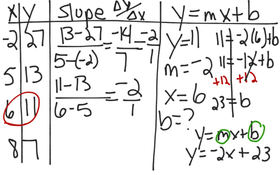 X Y Slope Δy/Δx Y=mx+b
-2 27
5 13
6 11
8 7
13-27/5-(-2) = -14/7 = -2/1
11-13/6-5 = -2/1
y=11
m=-2
x=6
b=?
11=-2(6)+b
11=-12+b
+12 +12
23=b
y=mx+b
y=-2x+23